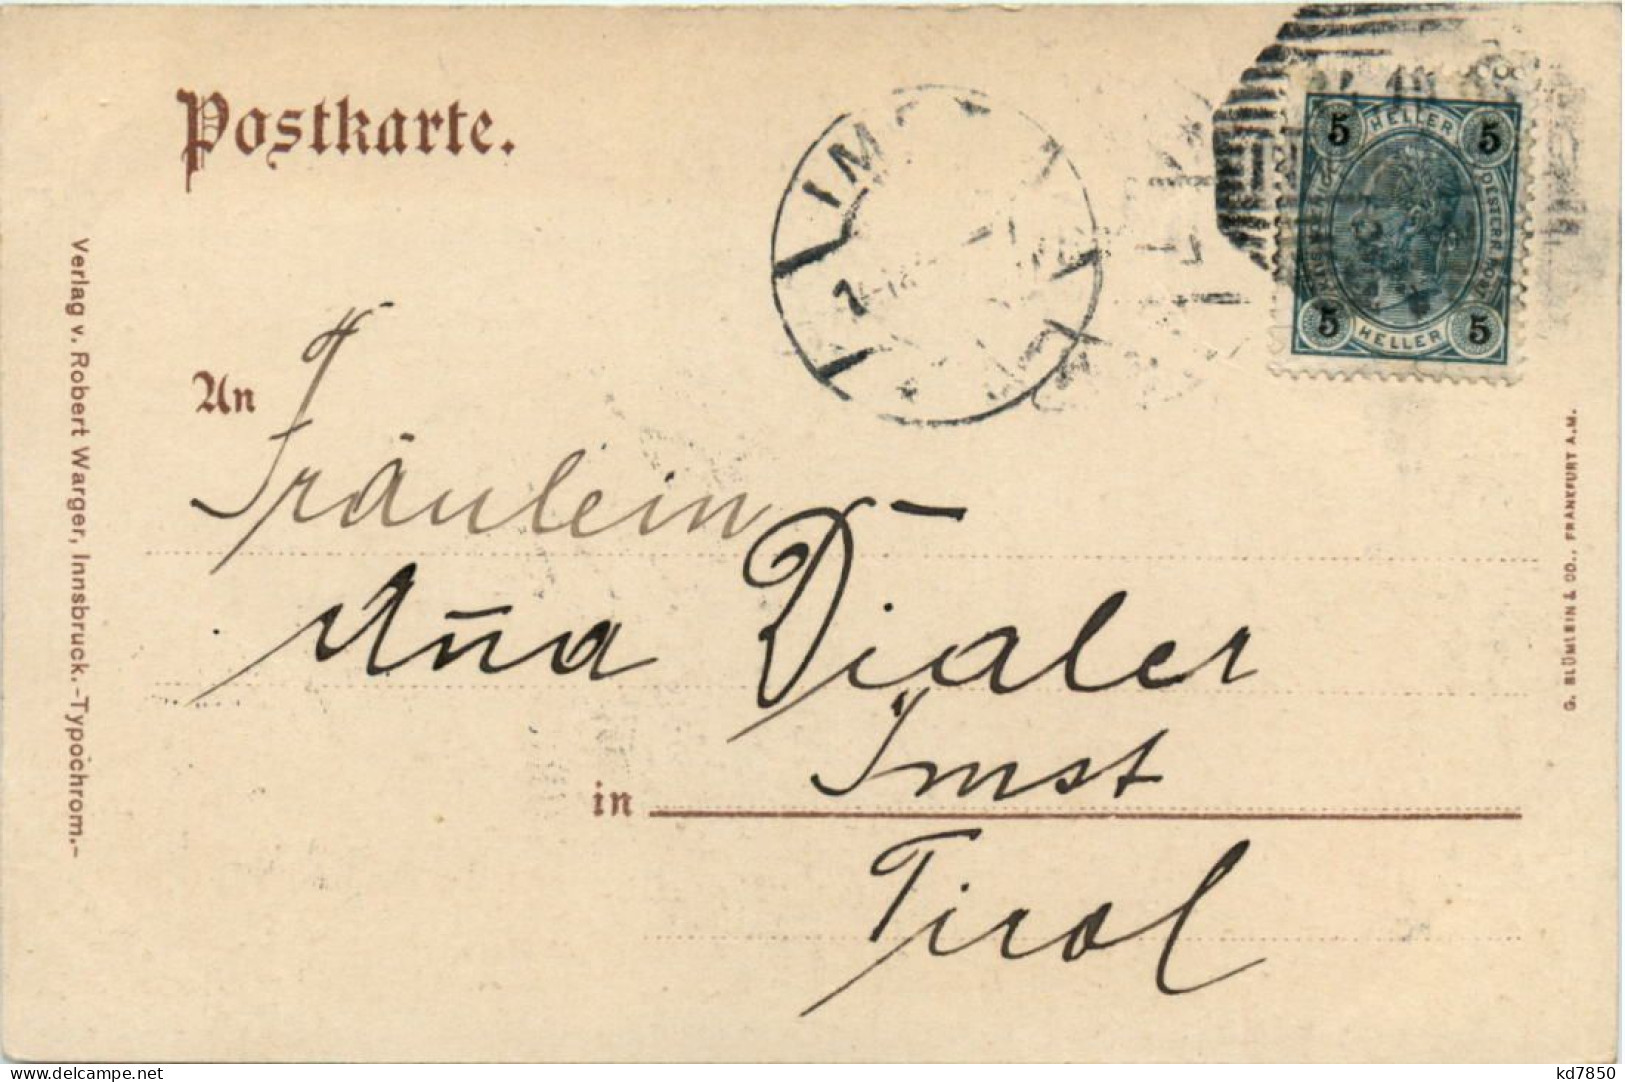 Postkarte.
IMST
5 HELLER 5
5 HELLER 5
An
Fräulein
An̄a Dialer
Imst
in
Tirol
Verlag v. Robert Warger, Innsbruck.-Typochrom.-
G. BLÜMLEIN & CO., FRANKFURT A.M.
www.delcampe.net
kd7850